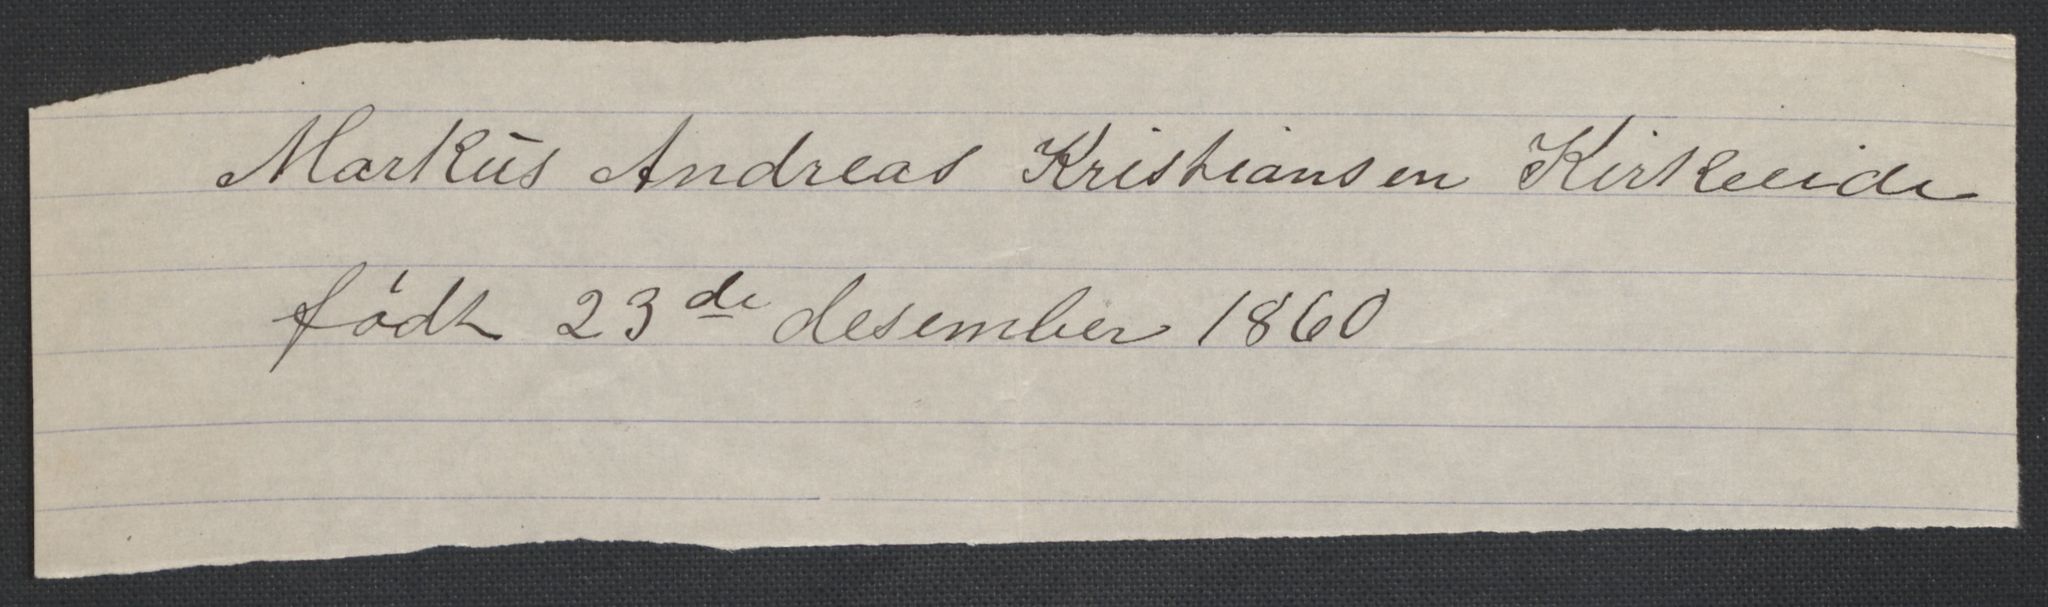 Markus Andreas Kristiansen Kirkeeide
født 23de desember 1860